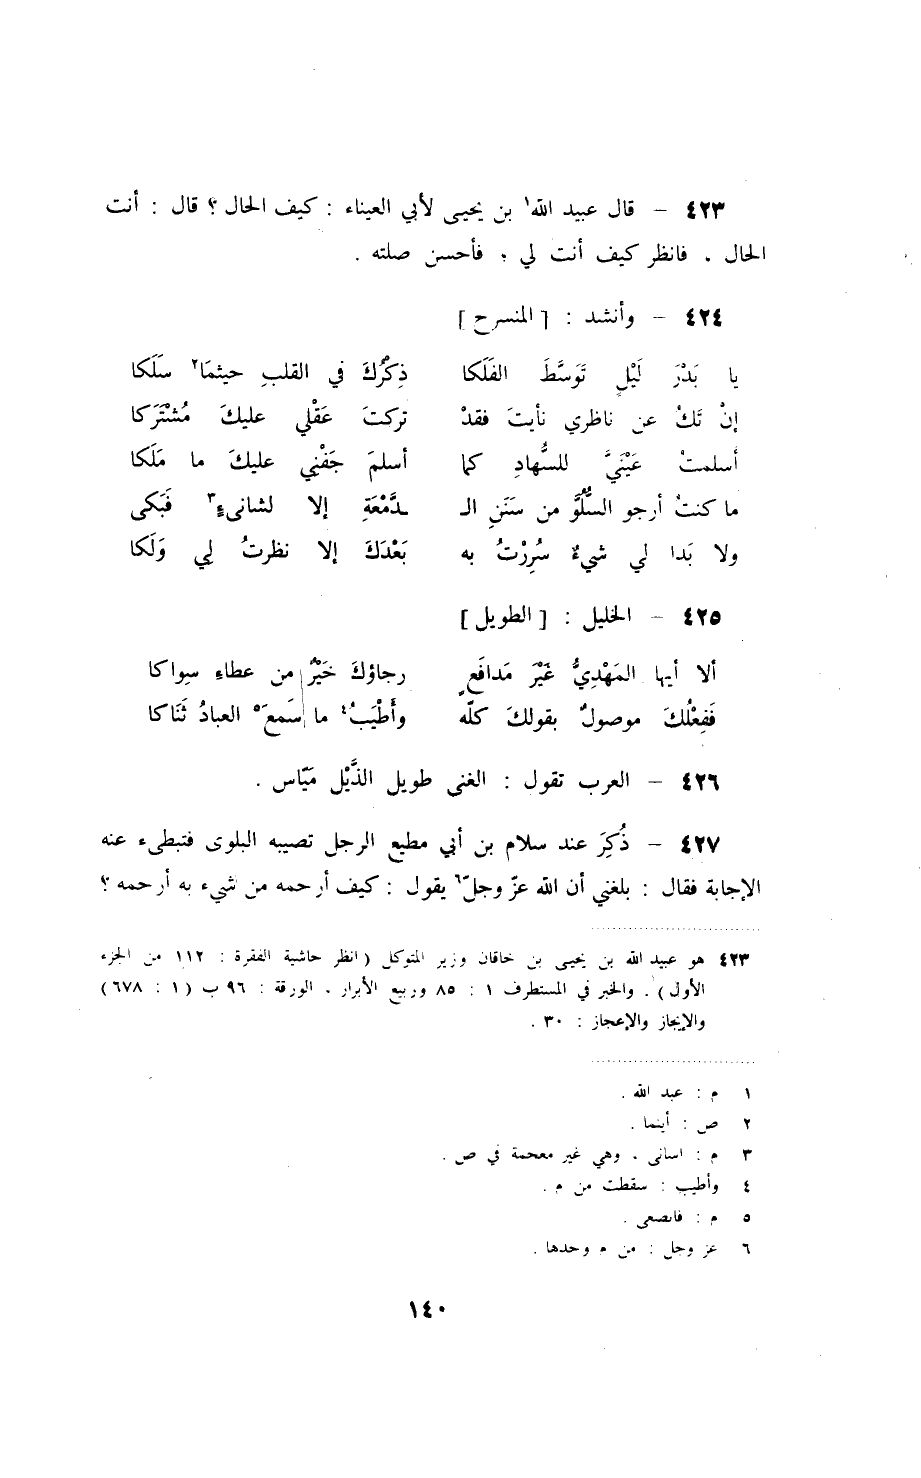 ٤٢٣ – قال عبيد الله١ بن يحيى لأبي العيناء : كيف الحال ؟ قال : أنت
الحال . فانظر كيف أنت لي ؛ فأحسن صلته .
٤٢٤ – وأنشد : [ المنسرح ]
يا بَدْرَ لَيْلٍ تَوَسَّطَ الفَلَكا ذِكْرُكَ في القلبِ حيثمَا٢ سَلَكا
إنْ تَكُ عن ناظري نأيتَ فقدْ تركتَ عَقْلي عليكَ مُشْتَرَكا
أسلمتْ عَيْنَيَّ للسُّهادِ كما أسلمَ جَفْنِي عليكَ ما مَلَكا
ما كنتُ أرجو السُّلُوَّ من سَنَنِ الـ ـدَّمْعَةِ إلا لشانىءٍ٣ فَبَكى
ولا بَدا لي شيءٌ سُرِرْتُ به بَعْدَكَ إلا نظرتُ لي وَلَكا
٤٢٥ – الخليل : [ الطويل ]
ألا أيها المَهْدِيُّ غَيْرَ مَدافَعٍ رجاؤكَ خَيْرٌ من عطاءِ سِواكا
فَفِعْلُكَ موصولٌ بقولكَ كلّه وأَطْيَبُ٤ ما سَمعَ٥ العبادُ ثَنَاكا
٤٢٦ – العرب تقول : الغنى طويل الذَّيْل مَيّاس .
٤٢٧ – ذُكِرَ عند سلام بن أبي مطيع الرجل تصيبه البلوى فتبطىء عنه
الإجابة فقال : بلغني أن الله عزّ وجلّ٦ يقول : كيف أرحمه من شيء به أرحمه ؟
٤٢٣ هو عبيد الله بن يحيى بن خاقان وزير المتوكل ( انظر حاشية الفقرة : ١١٢ من الجزء
الأول ) . والخبر في المستطرف ١ : ٨٥ وربيع الأبرار . الورقة : ٩٦ ب ( ١ : ٦٧٨ )
والإيجاز والإعجاز : ٣٠ .
١ م : عبد الله .
٢ ص : أينما .
٣ م : اسانى . وهي غير معجمة في ص .
٤ وأطيب : سقطت من م .
٥ م : فاىصعى .
٦ عز وجل : من م وحدها .
١٤٠